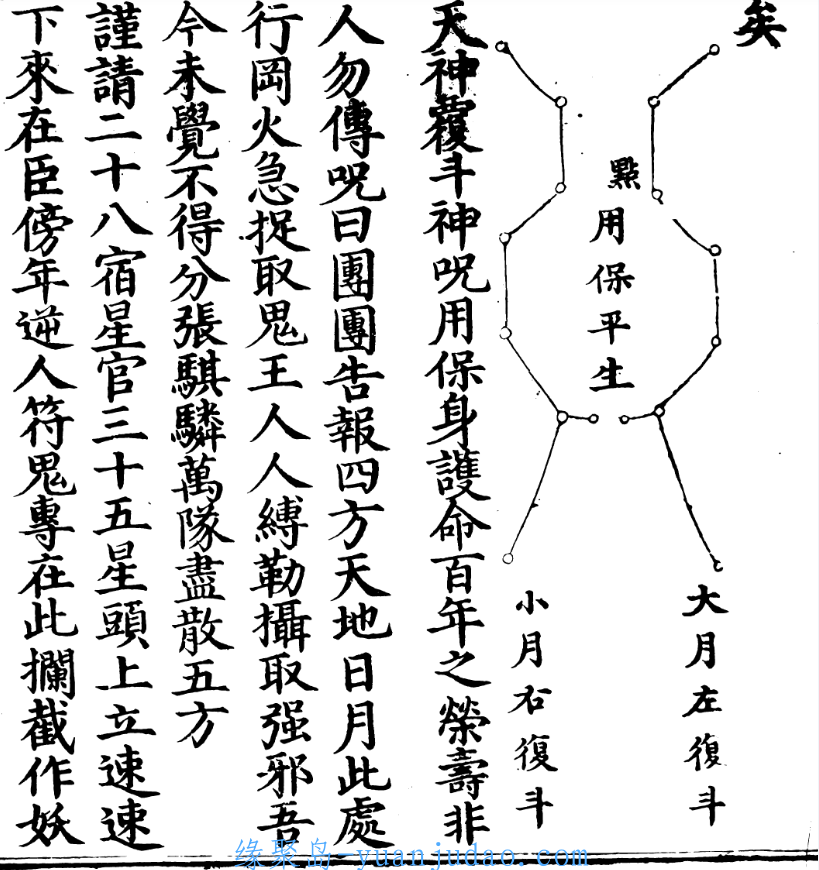 矣
點用保平生
大月左復斗
小月右復斗
天神覆斗神呪用保身護命百年之榮壽非
人勿傳呪曰團團告報四方天地日月此處
行罡火急捉取鬼王人人縛勒攝取强邪吾
今未覺不得分張騏驎萬隊盡散五方
謹請二十八宿星官三十五星頭上立速速
下來在臣傍年逆人符鬼專在此攔截作妖
缘聚岛-yuanjudao.com